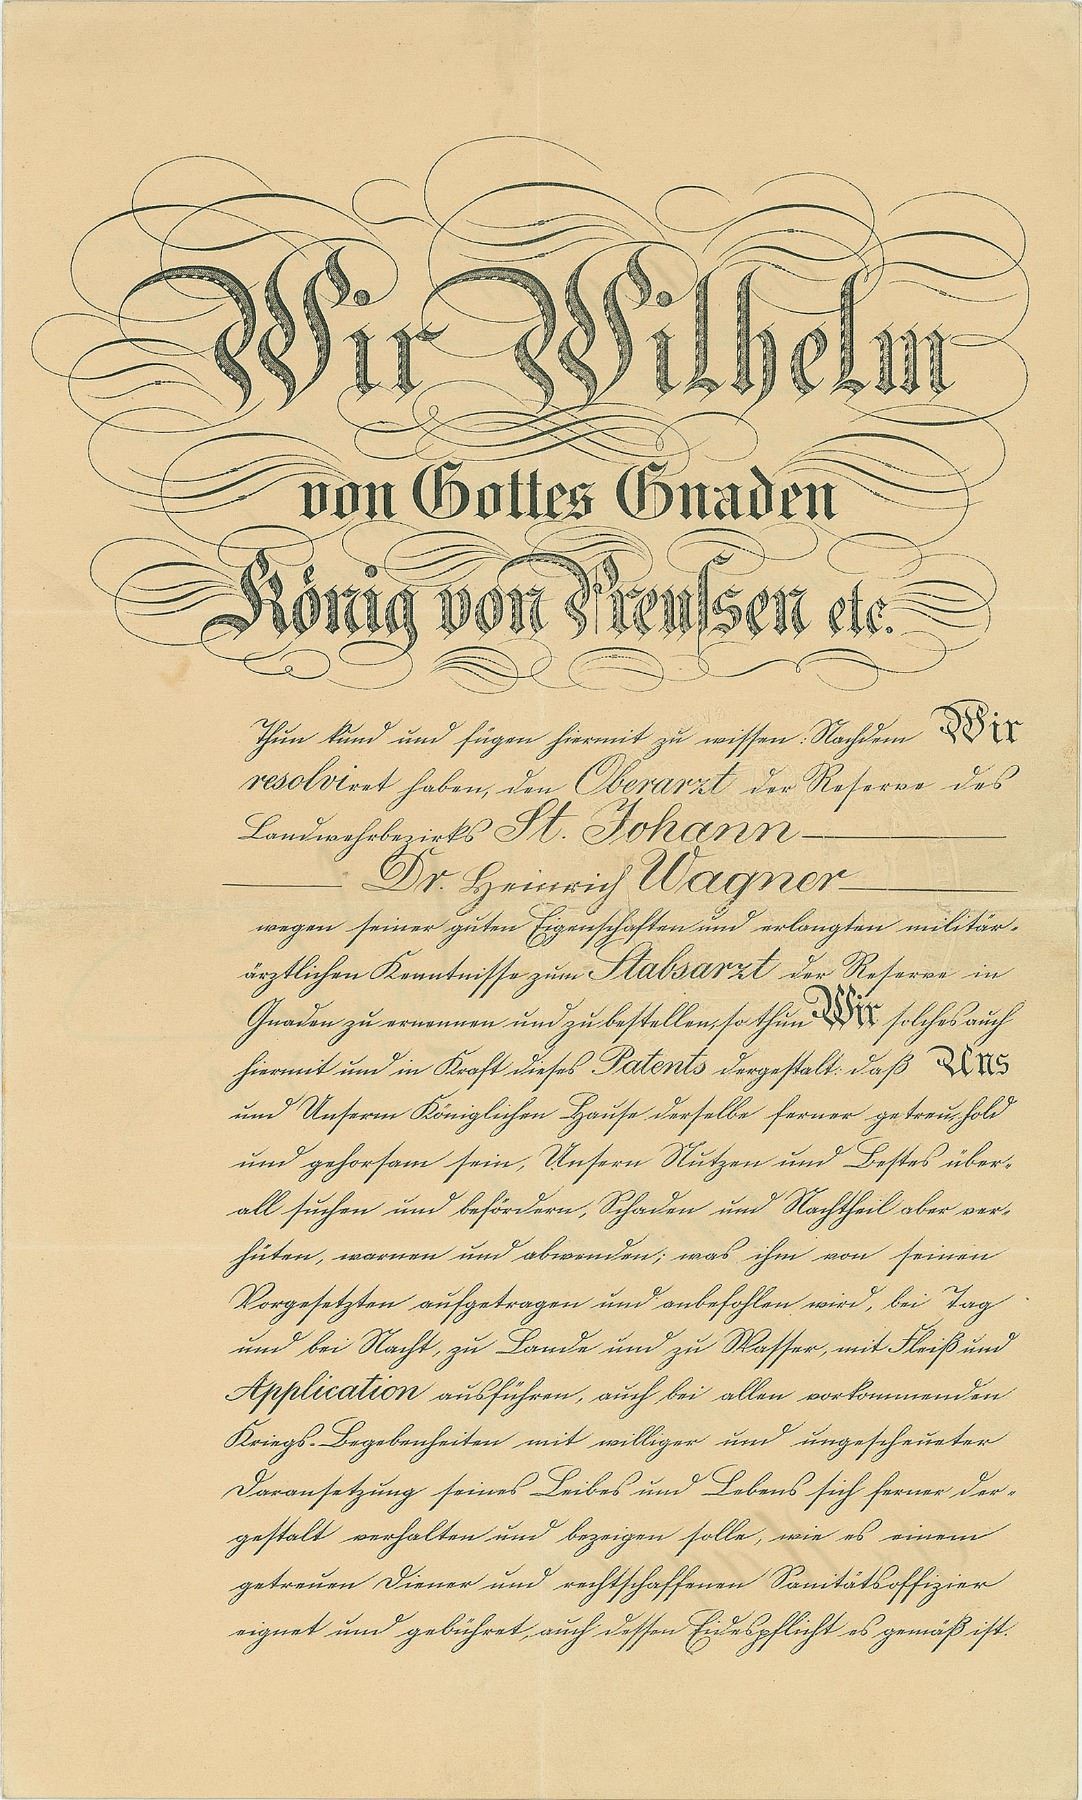 Wir Wilhelm
von Gottes Gnaden
König von Preußen etc.
Thun kund und fügen hiermit zu wissen: Nachdem Wir
resolviret haben, den Oberarzt der Reserve des
Landwehrbezirks St. Johann
Dr. Heinrich Wagner
wegen seiner guten Eigenschaften und erlangten militär-
ärztlichen Kenntnisse zum Stabsarzt der Reserve in
Gnaden zu ernennen und zu bestellen, so thun Wir solches auch
hiermit und in Kraft dieses Patents dergestalt: daß Uns
und Unserm Königlichen Hause derselbe ferner getreu, hold
und gehorsam sein, Unsern Nutzen und Bestes über-
all suchen und befördern, Schaden und Nachtheil aber ver-
hüten, warnen und abwenden; was ihm von seinen
Vorgesetzten aufgetragen und anbefohlen wird, bei Tag
und bei Nacht, zu Lande und zu Wasser, mit Fleiß und
Application ausführen, auch bei allen vorkommenden
Kriegs-Begebenheiten mit williger und ungescheueter
Daransetzung seines Leibes und Lebens sich ferner der-
gestalt verhalten und bezeigen solle, wie es einem
getreuen Diener und rechtschaffenen Sanitätsoffizier
eignet und gebühret, auch dessen Eidespflicht es gemäß ist.